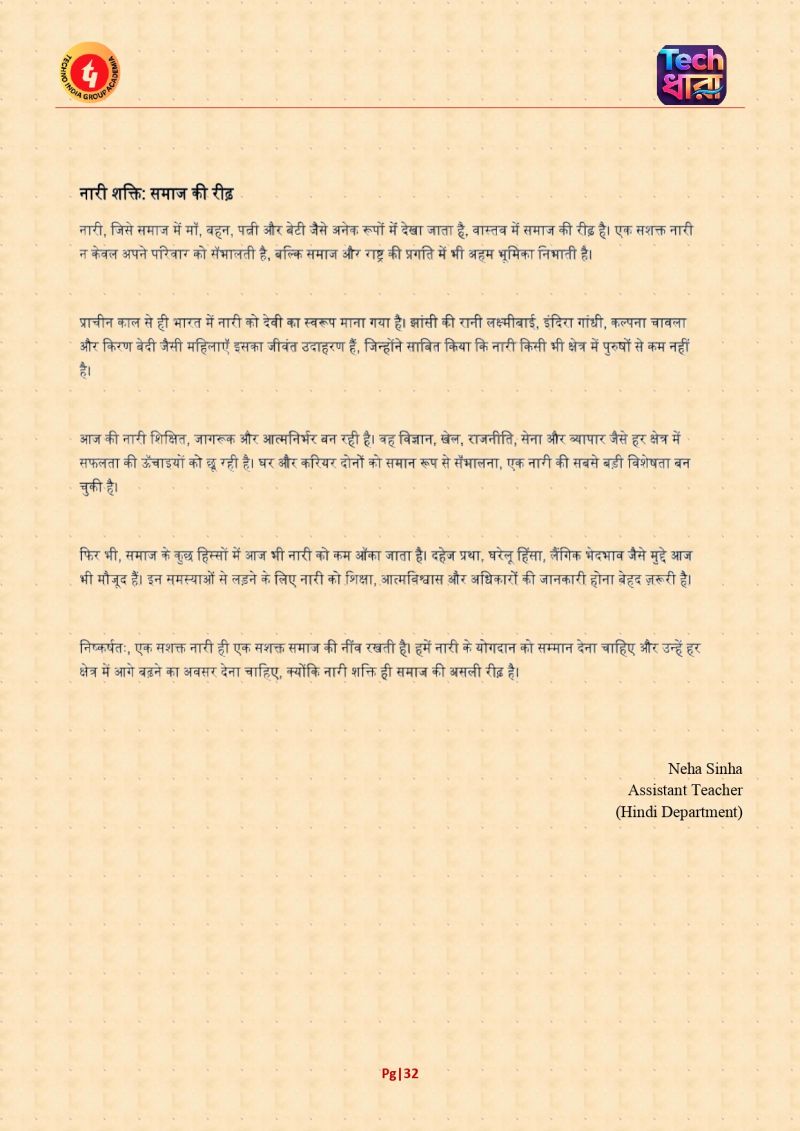 TECHNO INDIA GROUP ACADEMIA
Tech
धারা
नारी शक्ति: समाज की रीढ़
नारी, जिसे समाज में माँ, बहन, पत्नी और बेटी जैसे अनेक रूपों में देखा जाता है, वास्तव में समाज की रीढ़ है। एक सशक्त नारी
न केवल अपने परिवार को सँभालती है, बल्कि समाज और राष्ट्र की प्रगति में भी अहम भूमिका निभाती है।
प्राचीन काल से ही भारत में नारी को देवी का स्वरूप माना गया है। झांसी की रानी लक्ष्मीबाई, इंदिरा गांधी, कल्पना चावला
और किरण बेदी जैसी महिलाएँ इसका जीवंत उदाहरण हैं, जिन्होंने साबित किया कि नारी किसी भी क्षेत्र में पुरुषों से कम नहीं
है।
आज की नारी शिक्षित, जागरूक और आत्मनिर्भर बन रही है। वह विज्ञान, खेल, राजनीति, सेना और व्यापार जैसे हर क्षेत्र में
सफलता की ऊँचाइयों को छू रही है। घर और करियर दोनों को समान रूप से सँभालना, एक नारी की सबसे बड़ी विशेषता बन
चुकी है।
फिर भी, समाज के कुछ हिस्सों में आज भी नारी को कम आँका जाता है। दहेज प्रथा, घरेलू हिंसा, लैंगिक भेदभाव जैसे मुद्दे आज
भी मौजूद हैं। इन समस्याओं से लड़ने के लिए नारी को शिक्षा, आत्मविश्वास और अधिकारों की जानकारी होना बेहद ज़रूरी है।
निष्कर्षतः, एक सशक्त नारी ही एक सशक्त समाज की नींव रखती है। हमें नारी के योगदान को सम्मान देना चाहिए और उन्हें हर
क्षेत्र में आगे बढ़ने का अवसर देना चाहिए, क्योंकि नारी शक्ति ही समाज की असली रीढ़ है।
Neha Sinha
Assistant Teacher
(Hindi Department)
Pg|32